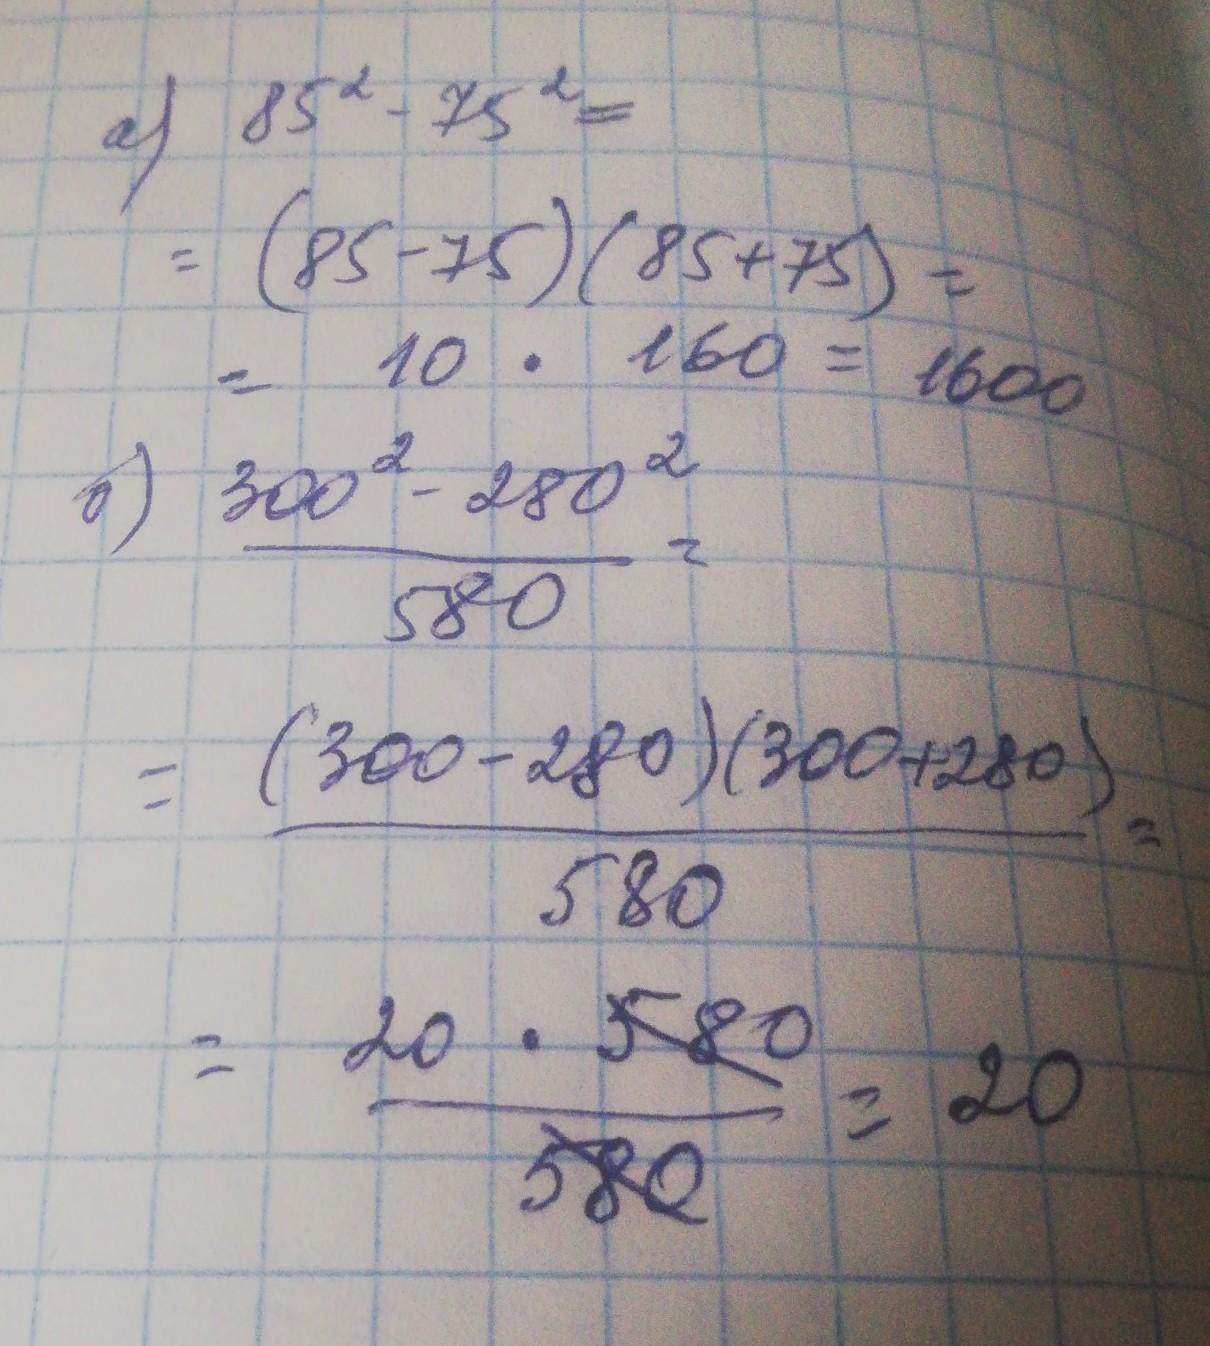 а) 85² - 75² =
= (85-75)(85+75) =
= 10 · 160 = 1600
б) 300² - 280²
=
580
= (300-280)(300+280) =
580
= 20 · 580 = 20
580